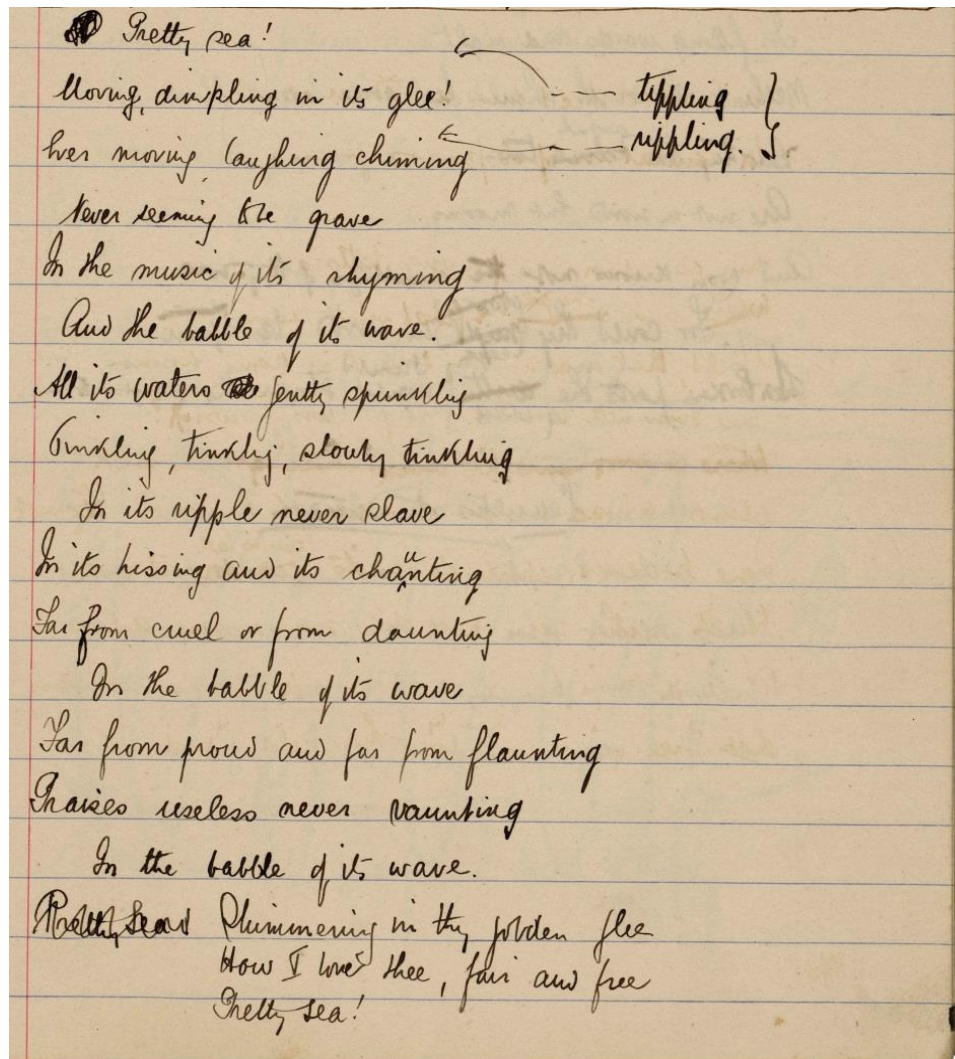 Pretty sea!
Moving, dimpling in its glee! -- tippling
Ever moving, laughing chiming -- rippling.
Never seeming the grave
In the music of its rhyming
And the babble of its wave.
All its waters gently sprinkling
Tinkling, tinkling, slowly tinkling
In its ripple never slave
In its hissing and its chaunting
Far from cruel or from daunting
In the babble of its wave
Far from proud and far from flaunting
Praises useless never vaunting
In the babble of its wave.
Pretty Sea Shimmering in thy golden glee
How I love thee, fair and free
Pretty sea!